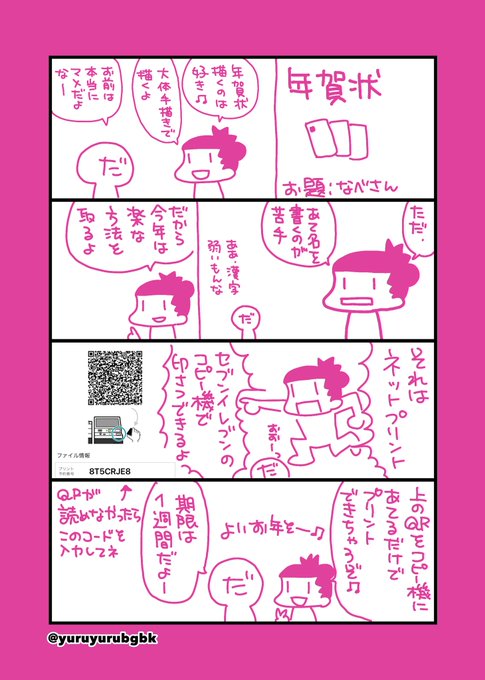 年賀状
お題:なべさん
年賀状
描くのは
好き♫
大体手描きで
描くよ
お前は
本当に
マメだよ
なー
だ
ただ、
あて名を
書くのが
苦手
あぁ、漢字
弱いもんな
だ
だから
今年は
楽な
方法を
取るよ
それは
ネットプリント
おぉーっ
だ
セブンイレブンの
コピー機で
印さつできるよ
ファイル情報
プリント
予約番号
8T5CRJE8
上のQRをコピー機に
あてるだけで
プリント
できちゃうぞ♫
よいお年をー♫
だ
期限は
1週間だよー
↑
QRが
読めなかったら
このコードを
入力してネ
@yuruyurubgbk